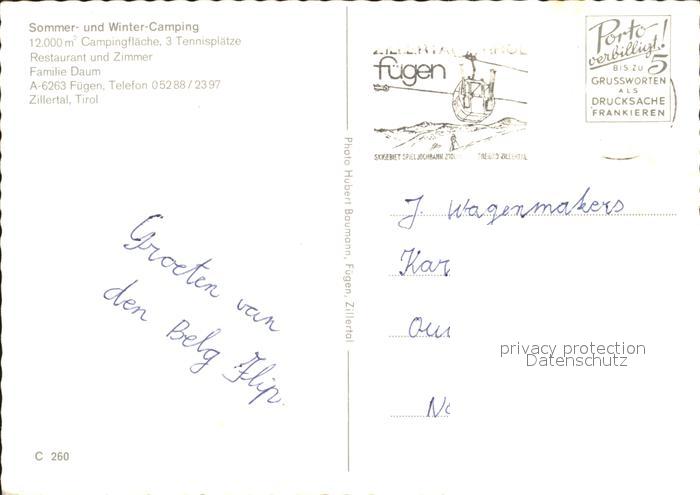 Sommer- und Winter-Camping
12.000 m² Campingfläche, 3 Tennisplätze
Restaurant und Zimmer
Familie Daum
A-6263 Fügen, Telefon 05288/2397
Zillertal, Tirol
Groeten van
den Belg Flip.
C 260
Photo Hubert Baumann, Fügen, Zillertal
fügen
SKIGEBIET SPIELJOCHBAHN
ZILLERTAL
Porto
verbilligt!
BIS ZU 5
GRUSSWORTEN
ALS
DRUCKSACHE
FRANKIEREN
J. Wagenmakers
Kar
Ou
N
privacy protection
Datenschutz